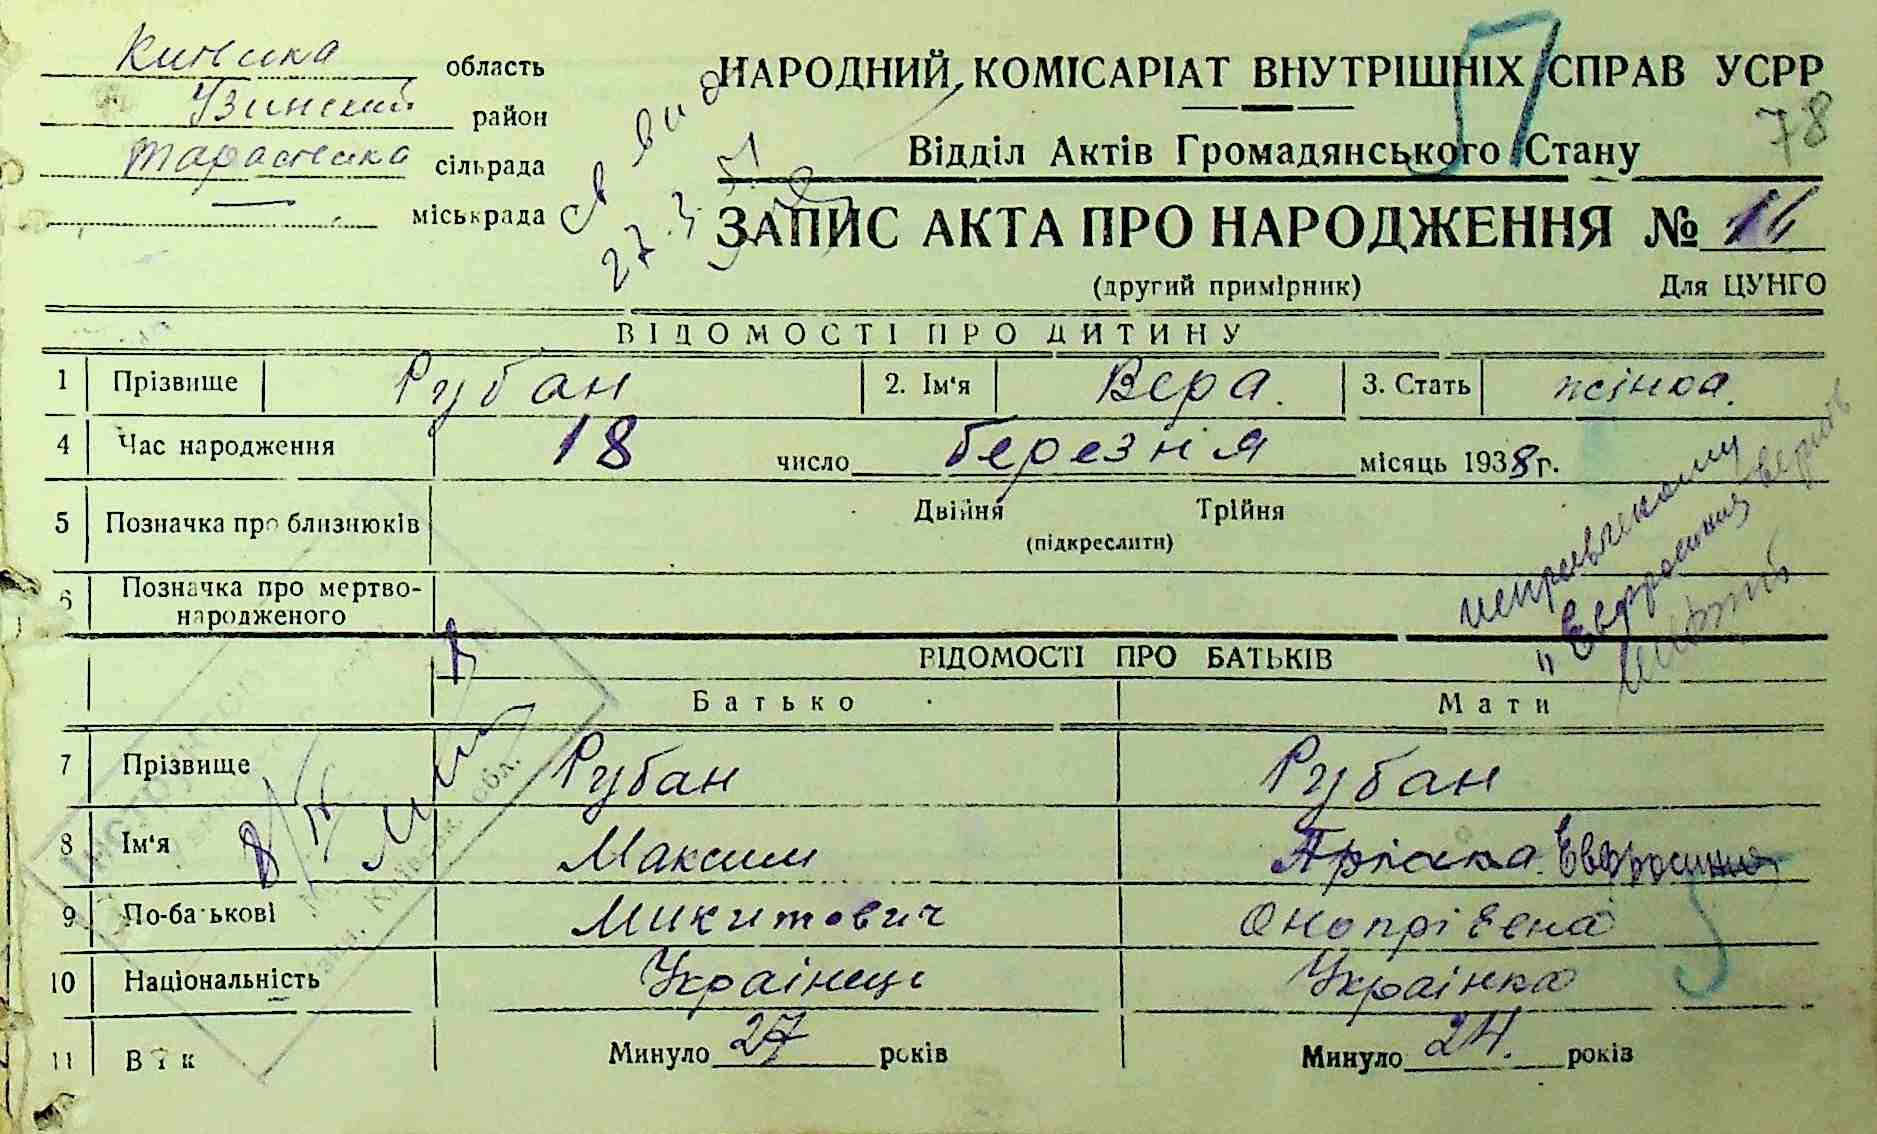 Киевска область
Узинский район
Тарасівка сільрада
міськрада
НАРОДНИЙ КОМІСАРІАТ ВНУТРІШНІХ СПРАВ УСРР
57
78
Відділ Актів Громадянського Стану
27.3.57
ЗАПИС АКТА ПРО НАРОДЖЕННЯ №
(другий примірник) Для ЦУНГО
ВІДОМОСТІ ПРО ДИТИНУ
1 Прізвище Рубан 2. Ім'я Вера. 3. Стать жінка.
4 Час народження 18 число березня місяць 1938 г.
5 Позначка про близнюків Двійня Трійня
(підкреслити)
6 Позначка про мертво-
народженого
исправленому
"Евфросиния верить
ВІДОМОСТІ ПРО БАТЬКІВ
Батько Мати
7 Прізвище Рубан Рубан
8 Ім'я Максим Евфросиния
9 По-батькові Микитович Онопрієвна
10 Національність Українець Українка
11 Вік Минуло 27 років Минуло 24. років
Інструктор
Київськ. обл.